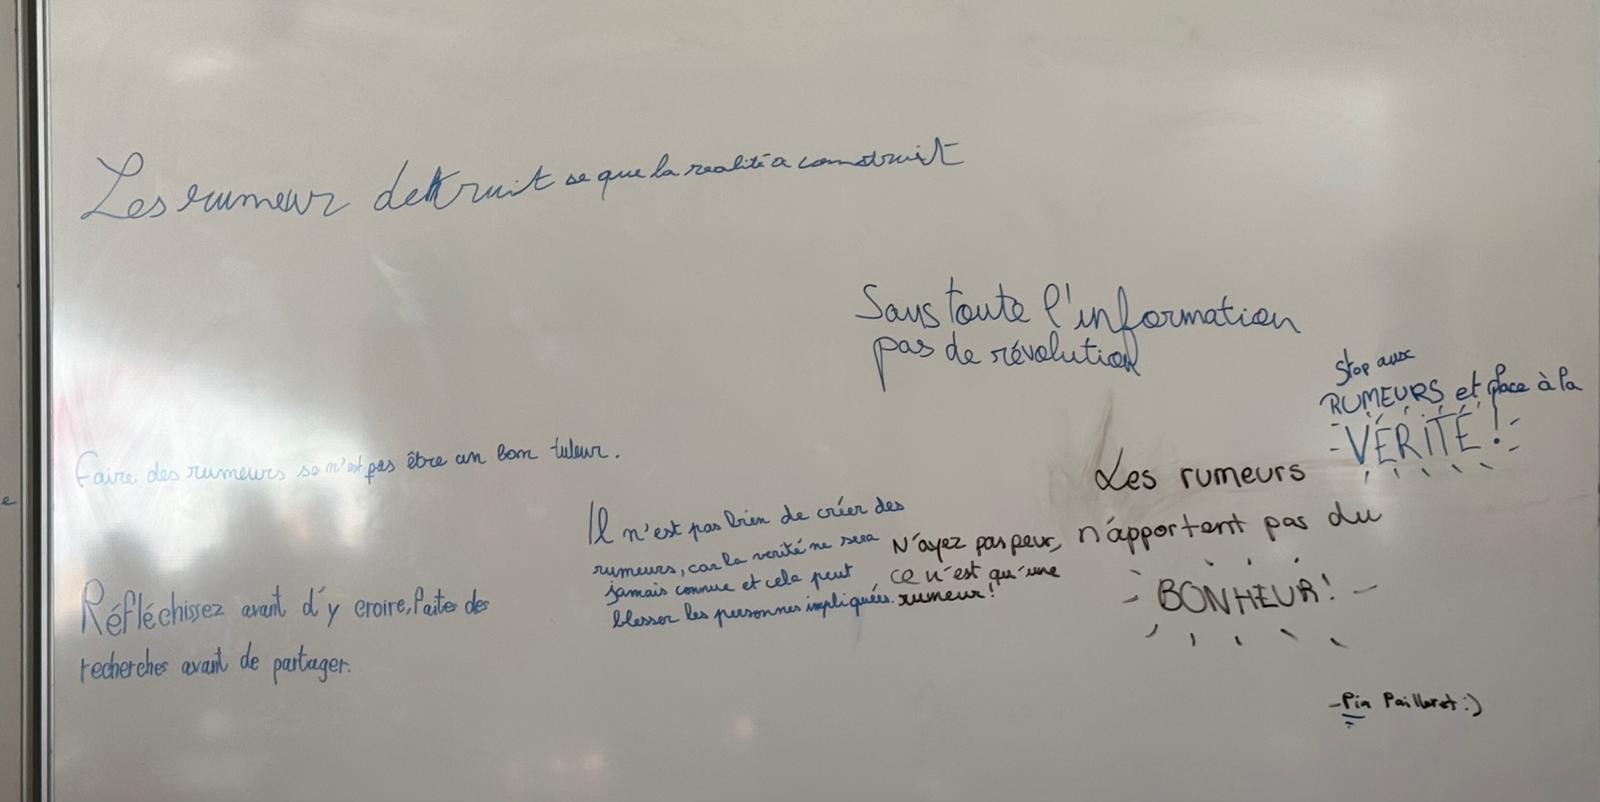 Les rumeur detruit se que la realité a construit
Sans toute l'information
pas de révolution
Stop aux
RUMEURS et place à la
VÉRITÉ !
Faire des rumeurs se n'est pas être un bon tuteur.
Les rumeurs
n'apportent pas du
BONHEUR !
Il n'est pas bien de créer des
rumeurs, car la verité ne sera
jamais connue et cela peut
blesser les personnes impliquées.
N'ayez pas peur,
ce n'est qu'une
rumeur !
Réfléchissez avant d'y croire, faites des
recherches avant de partager.
- Pia Pailloret :)
e